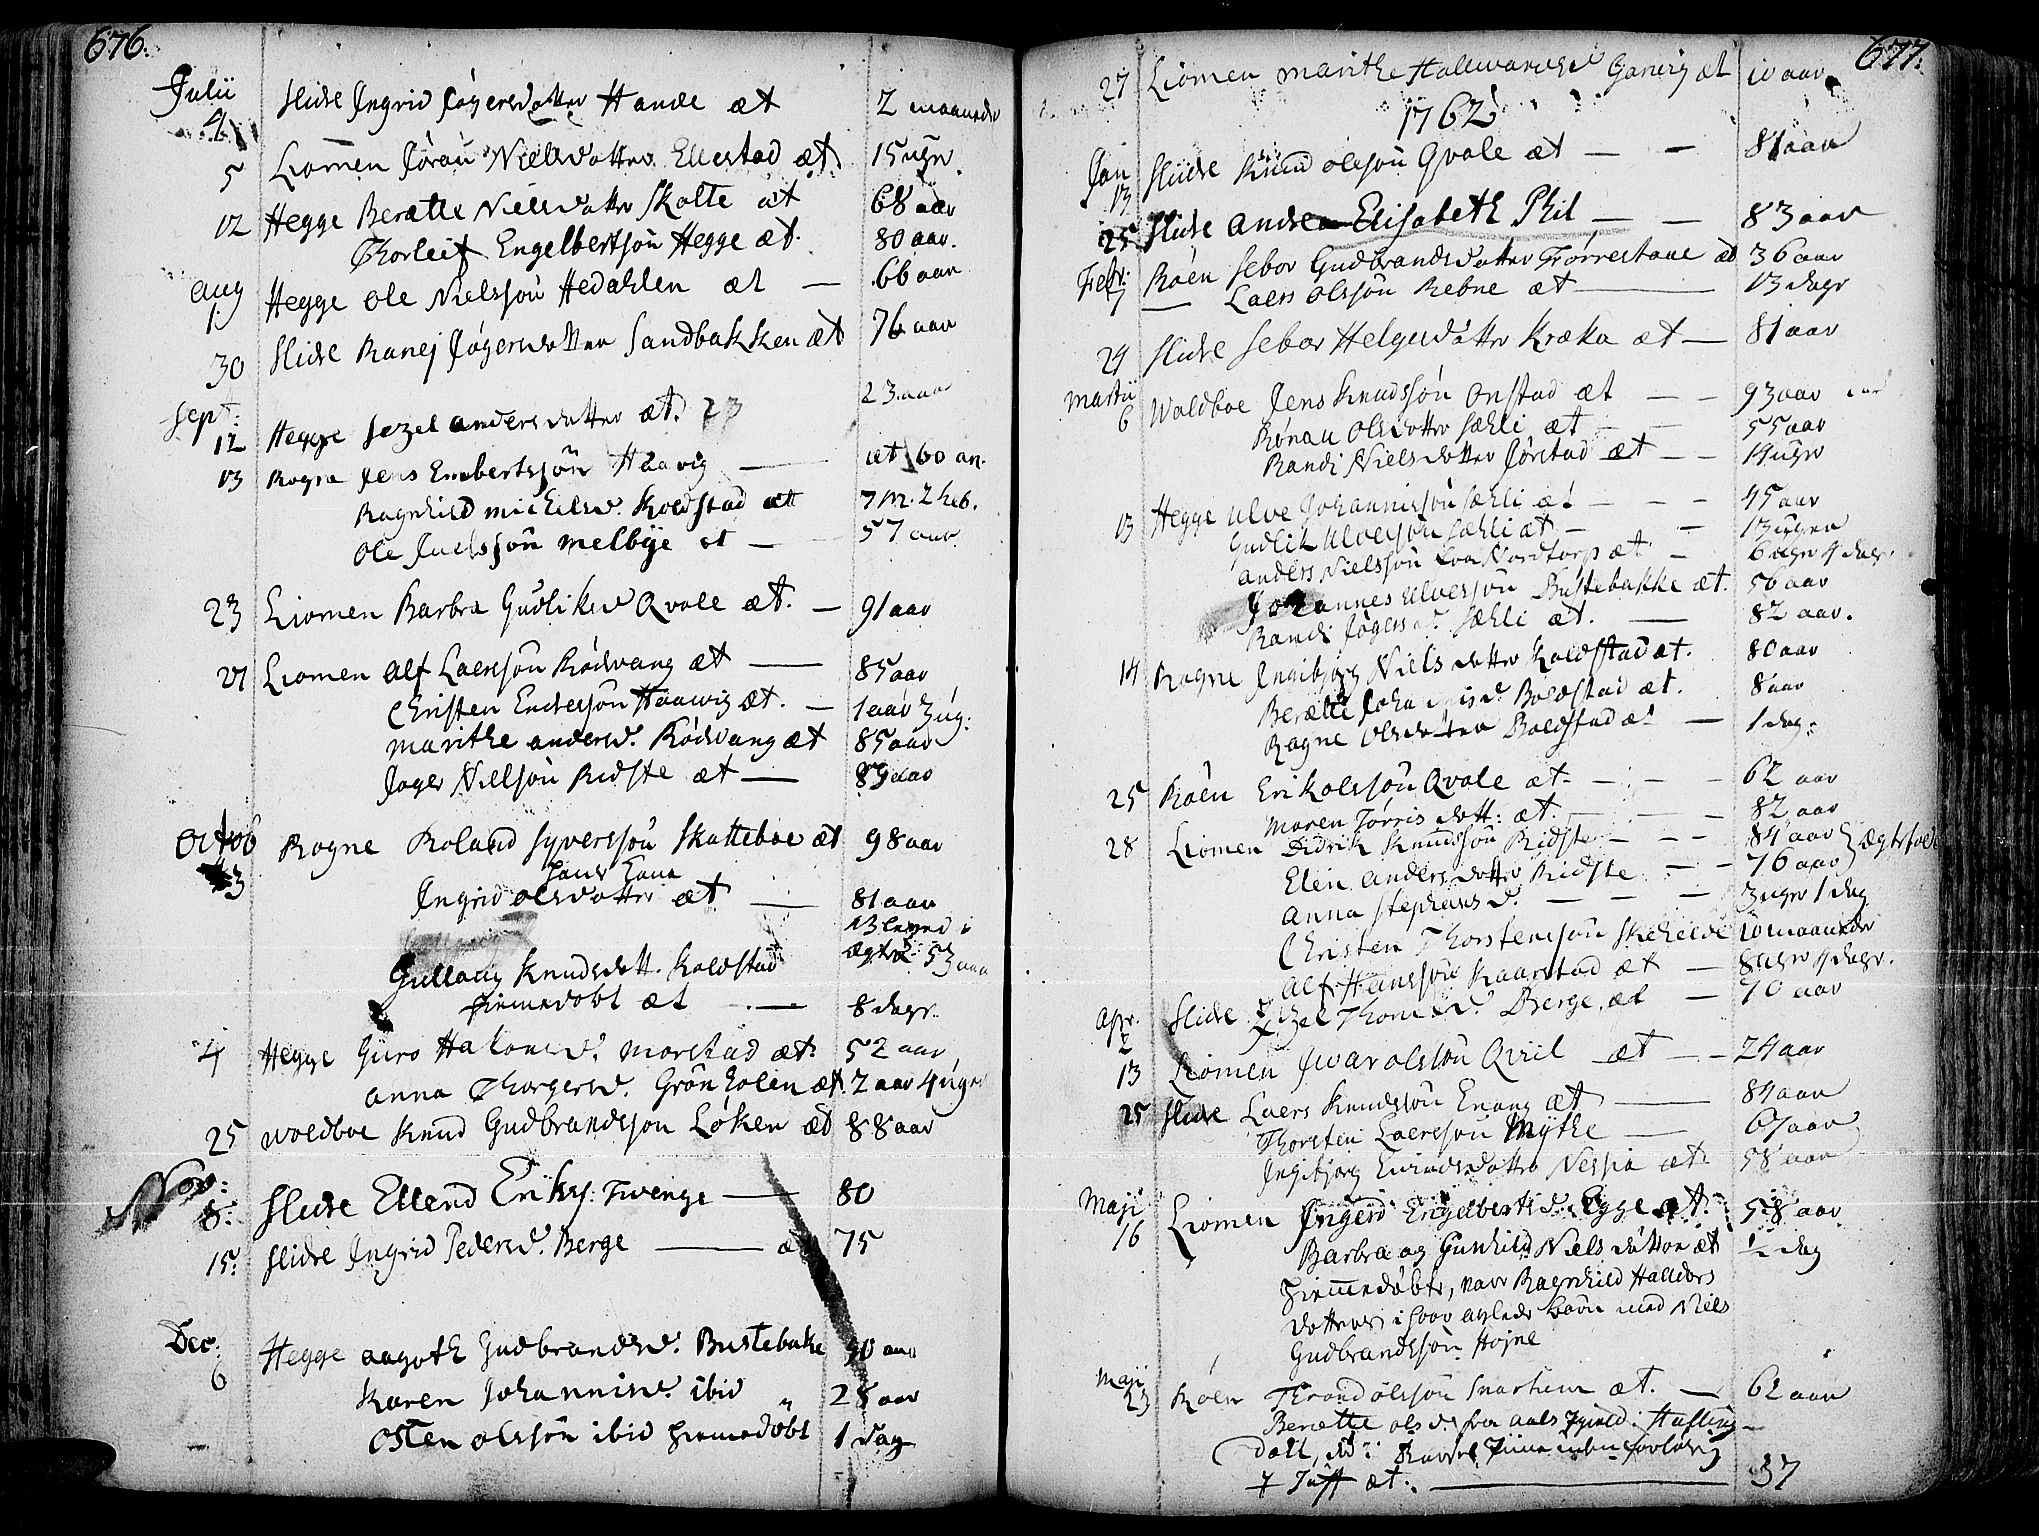 676.
Julii
4 Slidre Ingrid Jøgersdatter Hande æt 2 maaneder
5 Liomen Jøran Nielsdatter Ellestad æt 15 ugr.
12 Hegge Berætte Nielsdatter Skolte æt 68 aar
Thorleif Engelbertsøn Hegge æt. 80 aar.
Aug
1. Hegge Ole Nielssøn Hedahlen æt — 66 aar
30 Slidre Ranej Jøgersdatter Sandbakken æt 76 aar
Sept:
12 Hegge Sezel andersdatter æt. 23 23 aar
13 Rogne Jens Embertssøn Haavig — æt 60 aar.
Ragnhild michelsd. Koldstad æt 7 m. 2 heb.
Ole Juelssøn Melbye æt — 57 aar.
23 Liomen Barbra Gudliksd Qvale æt. — 91 aar
27 Liomen Alf Laerssøn Rødvang æt — 85 aar
Christen Enderssøn Haawig æt. — 1 aar 3 ug:
Marithe andersd. Rødvang æt 85 aar
Joger Nielssøn Ridste æt — 89 aar
Octob
3 Rogne Roland Syverssøn Skatteboe æt 98 aar
hans Kone
Ingrid olsdatter æt — 81 aar
13 leved i
ægtes: 53 aar
Gullaug Knudsdatt. Koldstad
hiemedøbt æt — 8 dager.
4 Hegge Guro Hakonsd. Morstad æt: 52 aar
Anna Thorgersd. Grønholen æt. 2 aar 4 uger
25 Woldboe Knud Gudbrandssøn Løken æt 88 aar
Nov:
8. Slidre Ellend Eriks: Twenge — 80
15. Slidre Ingrid Pedersd. Berge — æt 75
Dec:
6 Hegge aagoth Gudbrandsd. Bustebake 90 aar
Karen Johannisd. ibid 28 aar
Osten olssøn ibid hiemedøbt 1 dag
677.
27 Liomen Marithe Hallwardsd Garvig æt 10 aar
1762
Jan
13 Slidre Knud olssøn Qvale æt — — 81 aar
25 Slidre Andrea Elisabeth Phil — — 83 aar
Febr: Røen Sebor Gudbrandsdatter Tørrestane æt 36 aar
7 — Laers Olssøn Rebne æt — 13 dager
24 Slidre Sebor Helgesdatter Kræka æt — 81 aar
Martii
6 Woldboe Jens Knudssøn Onstad æt — — 93 aar
Rønau Olsdatter Sæhli æt — — 55 aar
Randi Nielsdatter Jørstad æt — — 14 uger
13 Hegge Ulve Johannissøn Sæhli æt — — 45 aar
Gudlik Ulvessøn Sæhli æt — — 13 uger
Anders Nielssøn Loe Nordtorp æt — 6 uger 4 dager
Johannes Ulvessøn Bustebakke æt. 56 aar
Randi Jøgersd: Sæhli æt. — 82 aar.
14 Rogne Ingibjørg Nielsdatter Koldstad æt. 80 aar
Berætte Johannisd. Boldstad æt. 8 aar
Ragne Olsdatter Boldstad æt — 1 dag:
25 Røen Erik olssøn Qvale æt — — 62 aar
Maren Torrisdatt: æt. — — 82 aar
28 Liomen Didrik Knudssøn Ridste — — 84 aar } Ægtefolk
Elen Andersdatter Ridste — — 76 aar
Anna Stephensd. — — — 3 uger 1 dag
Christen Thorstenssøn 10 maaneder
Alf Hanssøn Kaarstad æt — 8 uger 4 dager.
Apr.
2 Slidre Sezel Thomasd. Berge æt — 70 aar
13 Liomen Iwar olssøn Qviil æt — — 24 aar
25 Slidre Laers Knudssøn Enang æt — 84 aar
Thorsten Laerssøn Mythe — 67 aar
Ingibjørg Ewindsdatter Nessia æt. 58 aar
Maji
16 Liomen Ingerd Engelbertsd. Egge æt. 58 aar
Barbra og Gunhild Nielsdøttre æt ½ dag
Hiemmedøbte, vare Ragnhild Halldors
Datters i hoer aulede børn med Niels
Gudbrandssøn Høyne
Maji
23 Røen Thrond olssøn Snarhum æt. — 62 aar
Berætte olsd fra Aals Hafling —
dall,
æt. — 37